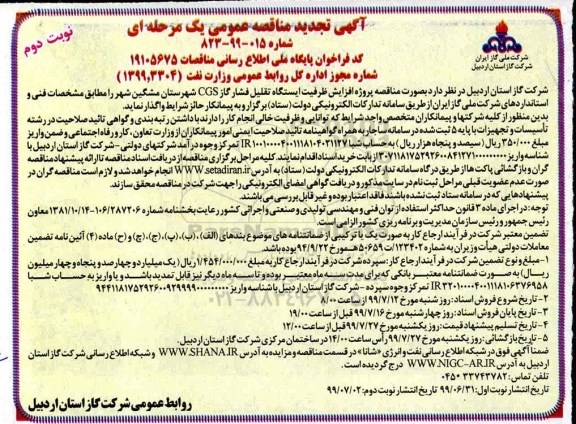 نوبت دوم
آگهی تجدید مناقصه عمومی یک مرحله ای
شماره ۰۱۵-۹۹-۸۲۳
کد فراخوان پایگاه ملی اطلاع رسانی مناقصات ۱۹۱۰۵۶۷۵
شماره مجوز اداره کل روابط عمومی وزارت نفت (۱۳۹۹,۳۳۰۴)
شرکت ملی گاز ایران
شرکت گاز استان اردبیل
شرکت گاز استان اردبیل در نظر دارد بصورت مناقصه پروژه افزایش ظرفیت ایستگاه تقلیل فشار گاز CGS شهرستان مشگین شهر را مطابق مشخصات فنی و
استانداردهای شرکت ملی گاز ایران از طریق سامانه تدارکات الکترونیکی دولت (ستاد) برگزار و به پیمانکار حائز شرایط واگذار نماید.
بدین منظور از کلیه شرکتها و پیمانکاران متخصص و واجد شرایط که توانایی و ظرفیت خالی انجام کار را دارند با داشتن رتبه بندی و گواهی تائید صلاحیت در رشته
تأسیسات و تجهیزات با پایه ۵ ثبت شده در سامانه ساجار به همراه گواهینامه تائید صلاحیت ایمنی امور پیمانکاران از وزارت تعاون ، کار و رفاه اجتماعی و ضمن واریز
مبلغ ۳۵۰/۰۰۰ ریال ( سیصد و پنجاه هزار ریال) به حساب شبا تمرکز وجوه درآمد شرکتهای دولتی - شرکت گاز استان اردبیل با
شناسه واریز از بابت خرید اسناد اقدام نمایند. کلیه مراحل برگزاری مناقصه از دریافت اسناد مناقصه تا ارائه پیشنهاد مناقصه
گران و بازگشائی پاکت ها از طریق درگاه سامانه تدارکات الکترونیکی دولت (ستاد) به آدرس WWW.setadiran.ir انجام خواهد شد و لازم است مناقصه گران در
صورت عدم عضویت قبلی مراحل ثبت نام در سایت مذکور و دریافت گواهی امضای الکترونیکی را جهت شرکت در مناقصه محقق سازند.
پیشنهادهایی که در سامانه ستاد ثبت نشده باشند فاقد اعتبار بوده و غیر قابل بررسی می باشند.
توجه: در اجرای ماده ۴ قانون حداکثر استفاده از توان فنی و مهندسی تولیدی و صنعتی و اجرائی کشور رعایت بخشنامه شماره ۱۰۶/۲۸۷۲۰۶-۱۳۸۱/۱۰/۱۴ معاون
رئیس جمهور و رئیس سازمان مدیریت و برنامه ریزی کشور الزامی است.
تضمین معتبر شرکت در فرآیند ارجاع کار به صورت یک یا ترکیبی از ضمانتنامه های موضوع بندهای (الف)، (ب)، (پ)، (ج)، (چ) و (ح) ماده (۴) آئین نامه تضمین
معاملات دولتی هیأت وزیران به شماره ۱۲۳۴۰۲/ت۵۰۶۵۹ه مورخ ۹۴/۹/۲۲ بوده باشد.
۱- مبلغ و نوع تضمین شرکت در فرآیند ارجاع کار: سپرده شرکت در فرآیند ارجاع کار به مبلغ ۱/۴۵۴/۰۰۰/۰۰۰ ریال (یک میلیارد و چهارصد و پنجاه و چهار میلیون
ریال) به صورت ضمانتنامه معتبر بانکی که برای مدت سه ماه معتبر بوده و تا سه ماه دیگر نیز قابل تمدید باشد و یا واریز به حساب شبا
تمرکز وجوه سپرده - شرکت گاز استان اردبیل با شناسه واریز
۲- تاریخ شروع فروش اسناد: روز شنبه مورخ ۹۹/۷/۱۲ از ساعت ۸/۰۰
۳- تاریخ پایان فروش اسناد: روز چهارشنبه مورخ ۹۹/۷/۱۶ قبل از ساعت ۱۹/۰۰
۴- تاریخ تسلیم پیشنهاد قیمت: روز یکشنبه مورخ ۹۹/۷/۲۷ قبل از ساعت ۱۲/۰۰
۵- تاریخ بازگشائی: روز یکشنبه مورخ ۹۹/۷/۲۷ رأس ساعت ۱۴/۰۰ در ساختمان مرکزی شرکت گاز استان اردبیل.
ضمناً آگهی فوق در شبکه اطلاع رسانی نفت و انرژی «شانا» در قسمت مناقصه و مزایده به آدرس WWW.SHANA.IR و شبکه اطلاع رسانی شرکت گاز استان
اردبیل به آدرس WWW.NIGC-AR.IR درج گردیده است.
تلفن تماس: ۳۳۷۴۳۷۸۲ ۰۴۵
تاریخ انتشار نوبت اول: ۹۹/۰۶/۳۱ تاریخ انتشار نوبت دوم: ۹۹/۰۷/۰۲
روابط عمومی شرکت گاز استان اردبیل